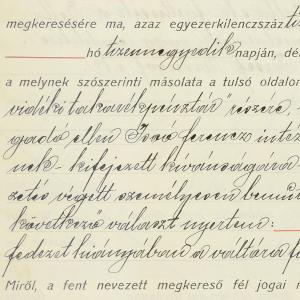 megkeresésére ma, azaz egyezerkilenczszáz ti
hó tizennegyedik napján, dé
a melynek szószerinti másolata a tulsó oldalon
vidéki takarékpénztár" részére,
ellen Joó Ferencz intéz
nek - kifejezett kívánságára
végett személyesen
következő választ nyertem:
fedezet hiányában a váltória f
Miről, a fent nevezett megkereső fél jogai m